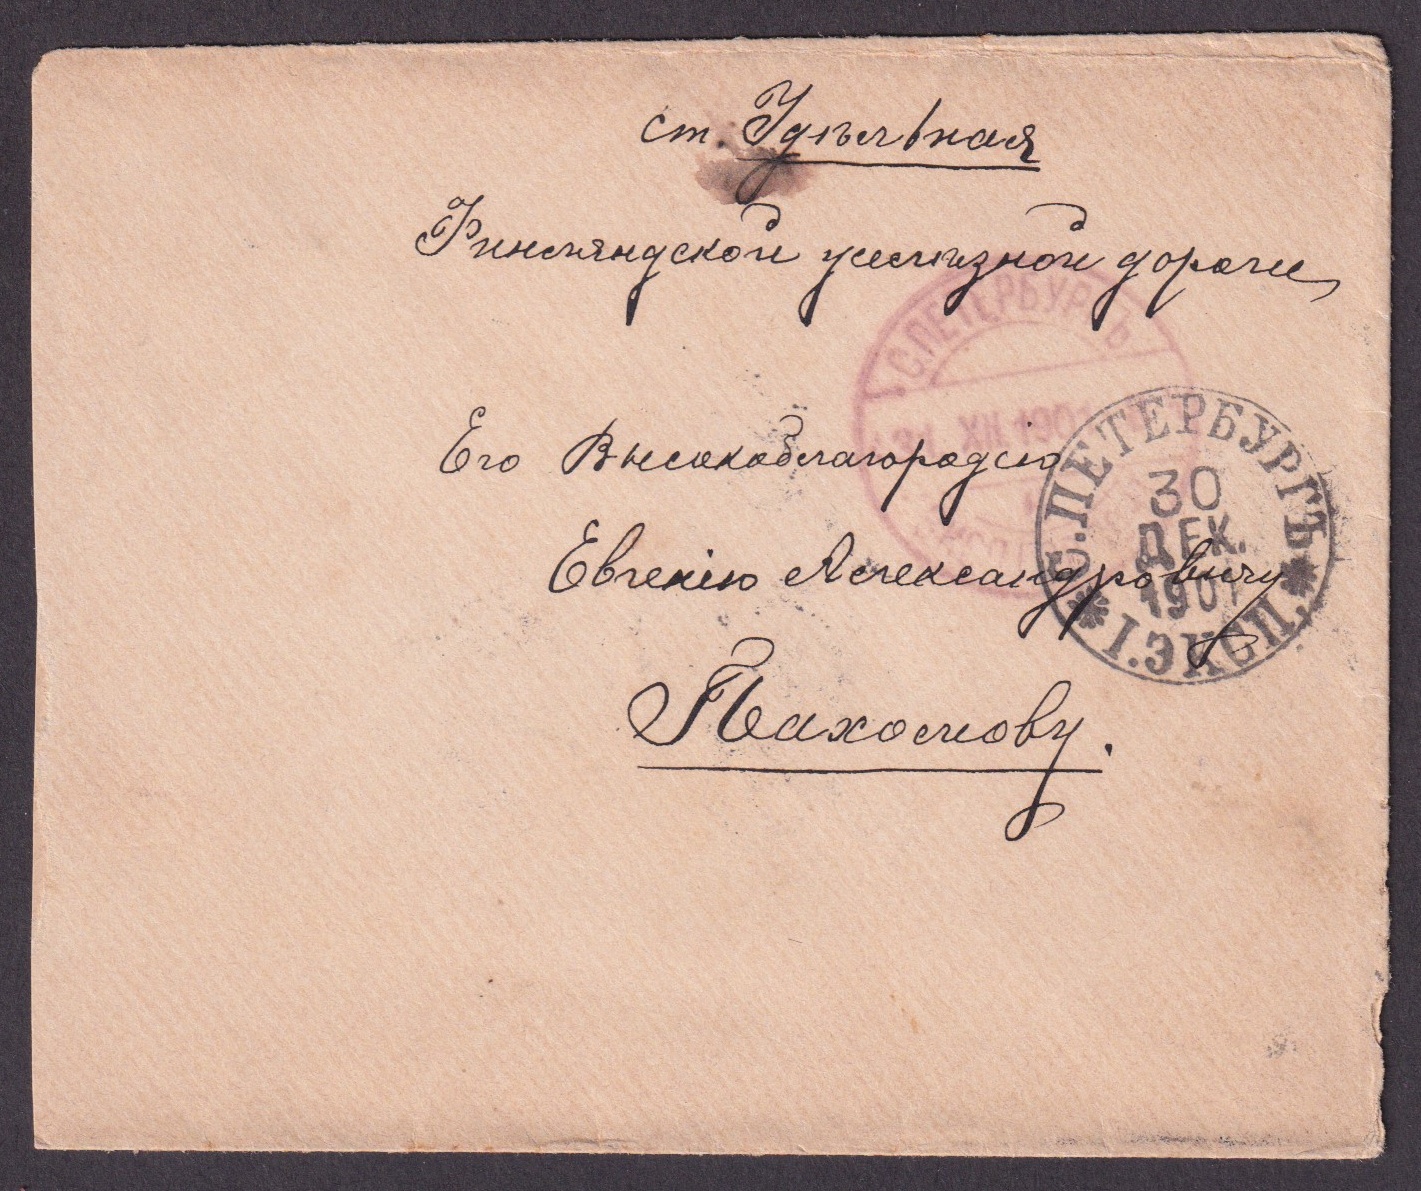 ст. Удѣльная
Финляндской желѣзной дороги
С.ПЕТЕРБУРГЪ
31 XII 1901
Его Высокоблагородію
С.ПЕТЕРБУРГЪ
30
ДЕК.
1901
I.ЭКСП.
Евгенію Александровичу
Пахомову.